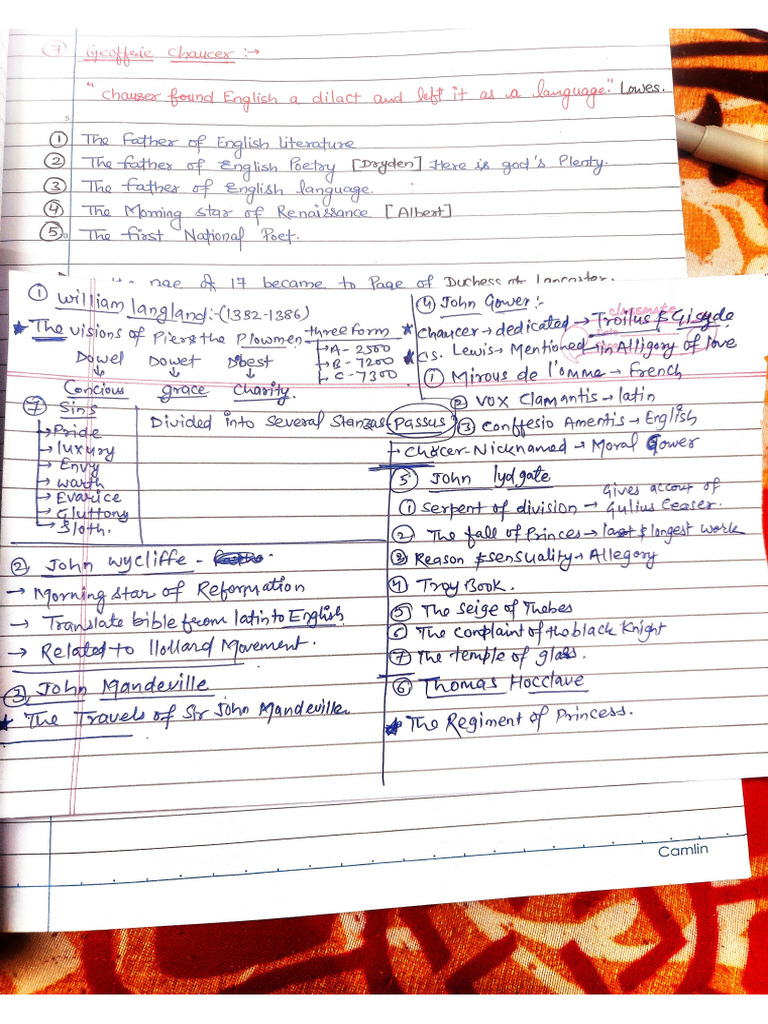 ⑦ Geoffrie Chaucer :→
"Chauser found English a dilact and left it as a language." Lowes.
① The Father of English literature
② The father of English Poetry [Dryden] Here is god's Plenty.
③ The father of English language.
④ The Morning star of Renaissance [Albert]
⑤ The first National Poet.
of 17 became to Page of Duchess of Lancaster.
① William langland:-(1332-1386)
★ The visions of Piers the Plowmen
three form
A - 2500
B - 7200
C - 7300
Dowel Dowet Dobest
Concious grace Charity.
⑦ Sins
Pride
luxury
Envy
warth
Evarice
Gluttony
Sloth.
Divided into several Stanzas-Passus
② John wycliffe -
→ Morning star of Reformation
→ Translate bible from latin to English
→ Related to llollard Movement.
③ John Mandeville
★ The Travels of Sir John Mandeville
④ John Gower:-
classmate
★ Chaucer→dedicated→Troilus & Crisyde
★ cs. Lewis→Mentioned in Alligory of love
① Mirous de l'omme→French
② vox Clamantis→latin
③ Conffesio Amentis→English
→ Chacer-Nicknamed→Moral Gower
⑤ John lydgate
① Serpent of division→Gives accout of Gulius Ceaser.
② The fall of Princes→last & longest work
③ Reason & sensuality→Allegory
④ Troy Book.
⑤ The seige of Thebes
⑥ The complaint of the black Knight
⑦ The temple of glass.
⑥ Thomas Hocclave
★ The Regiment of Princess.
Camlin